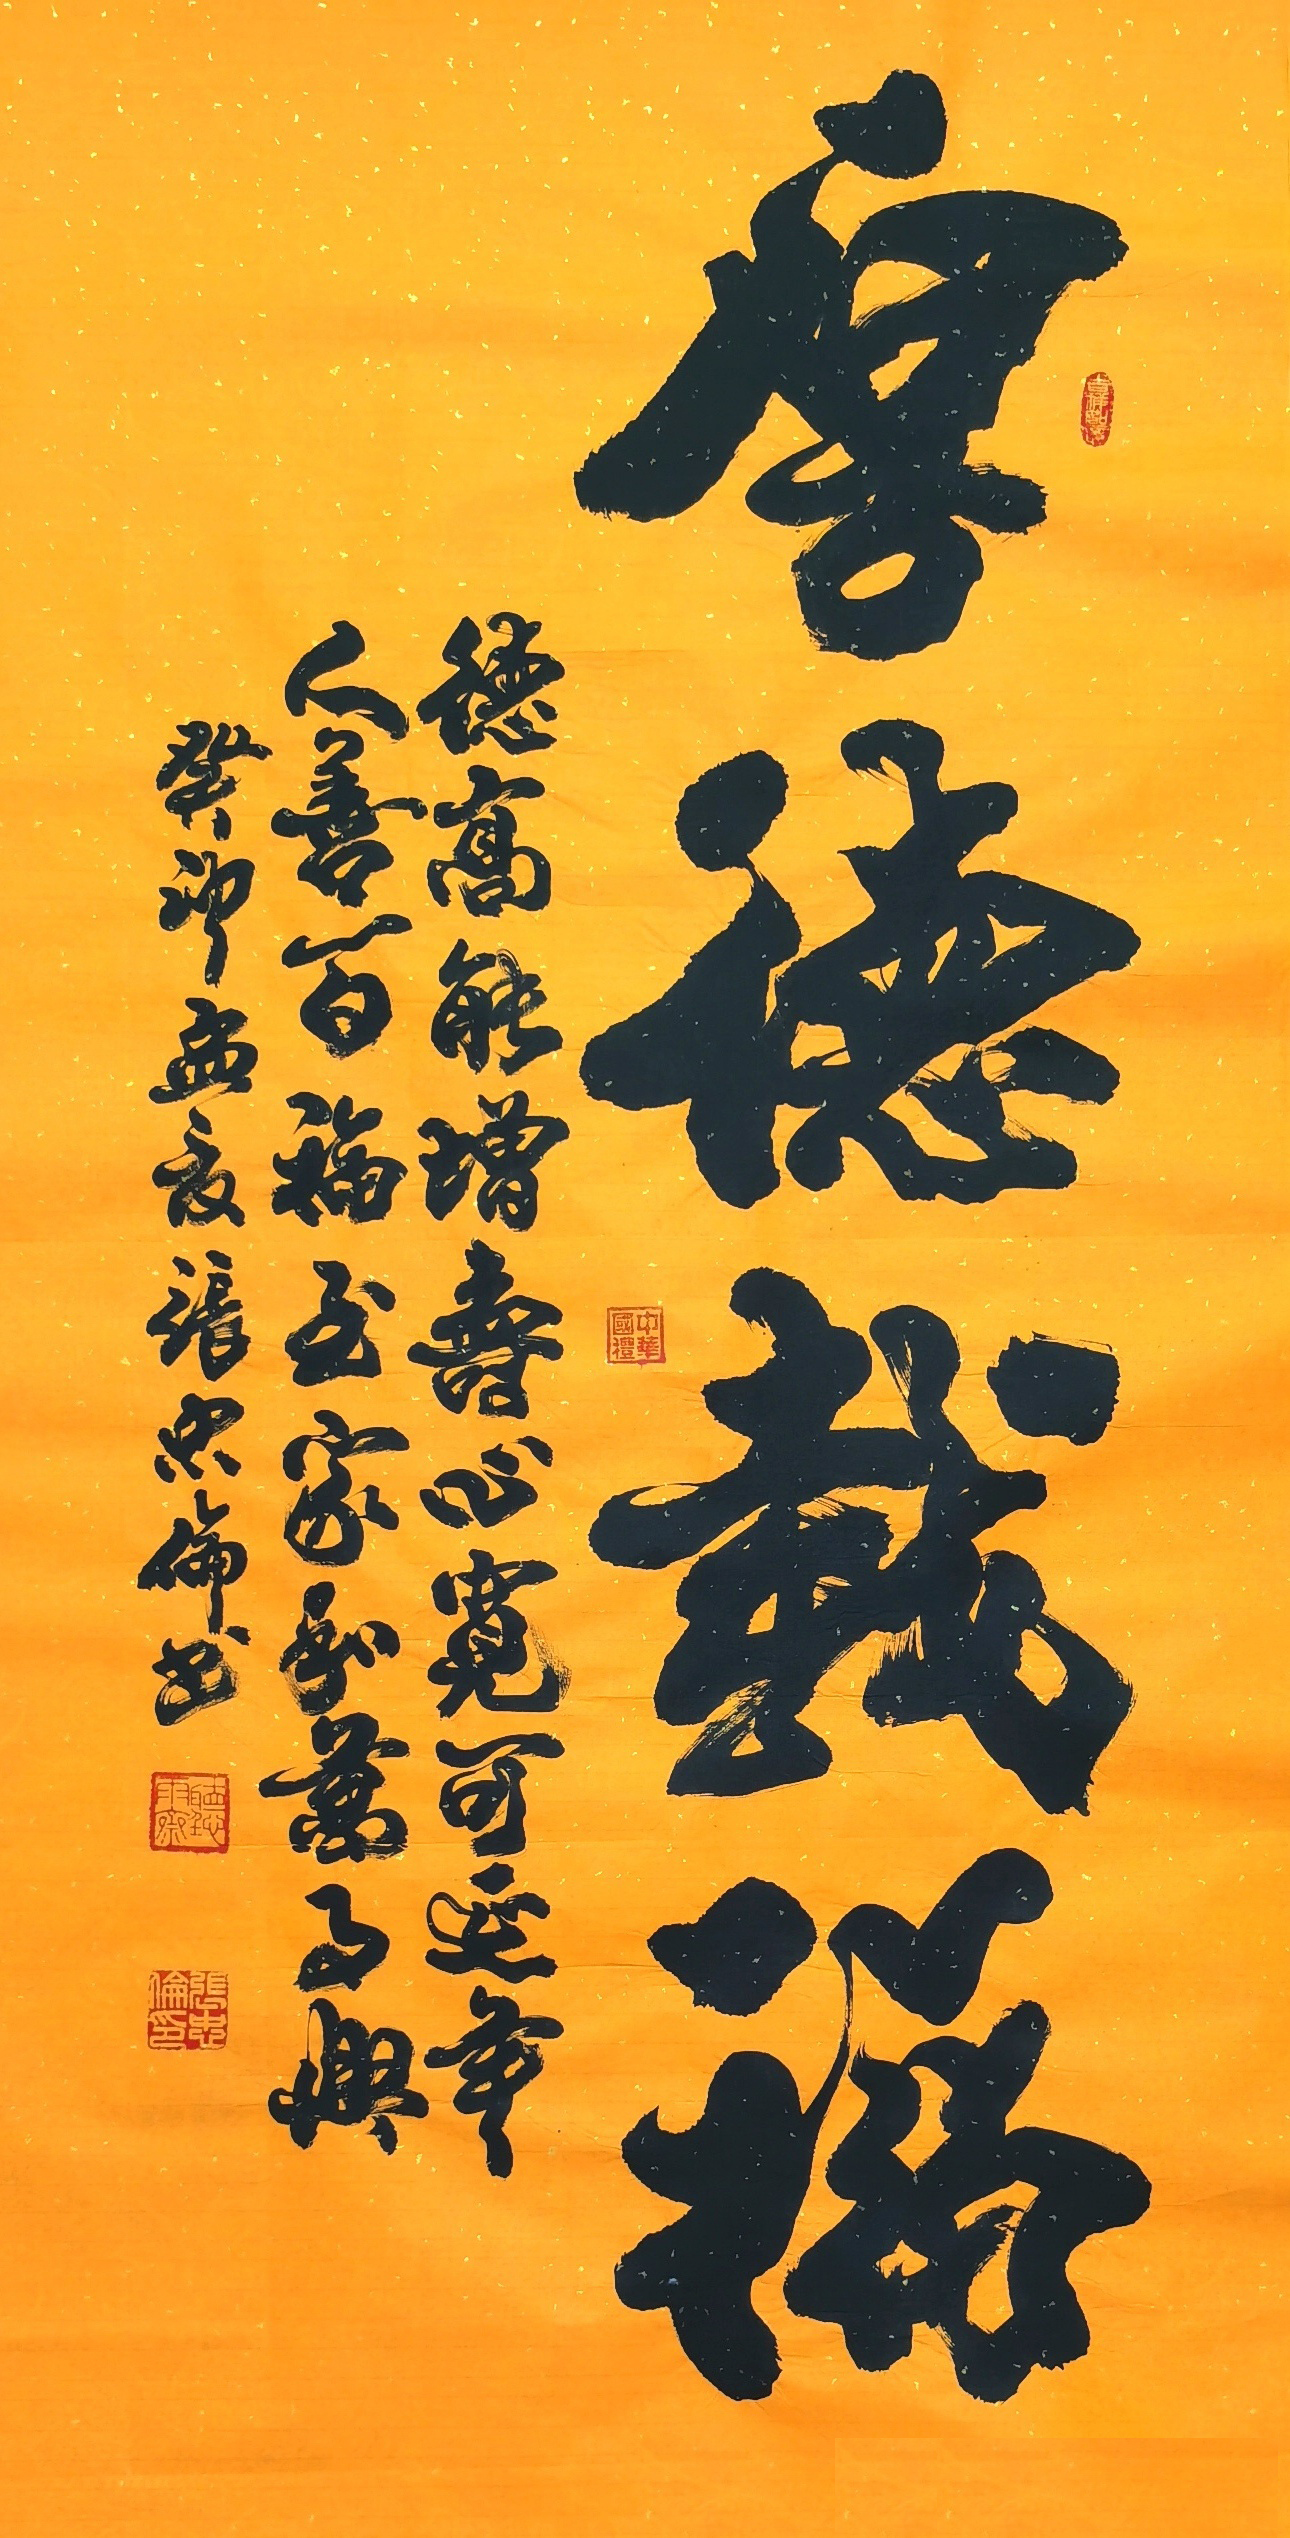 厚德載福
德高能增壽心寬可延年
人善百福至家和萬事興
癸卯孟夏張忠倫書
中華國禮
張忠倫印